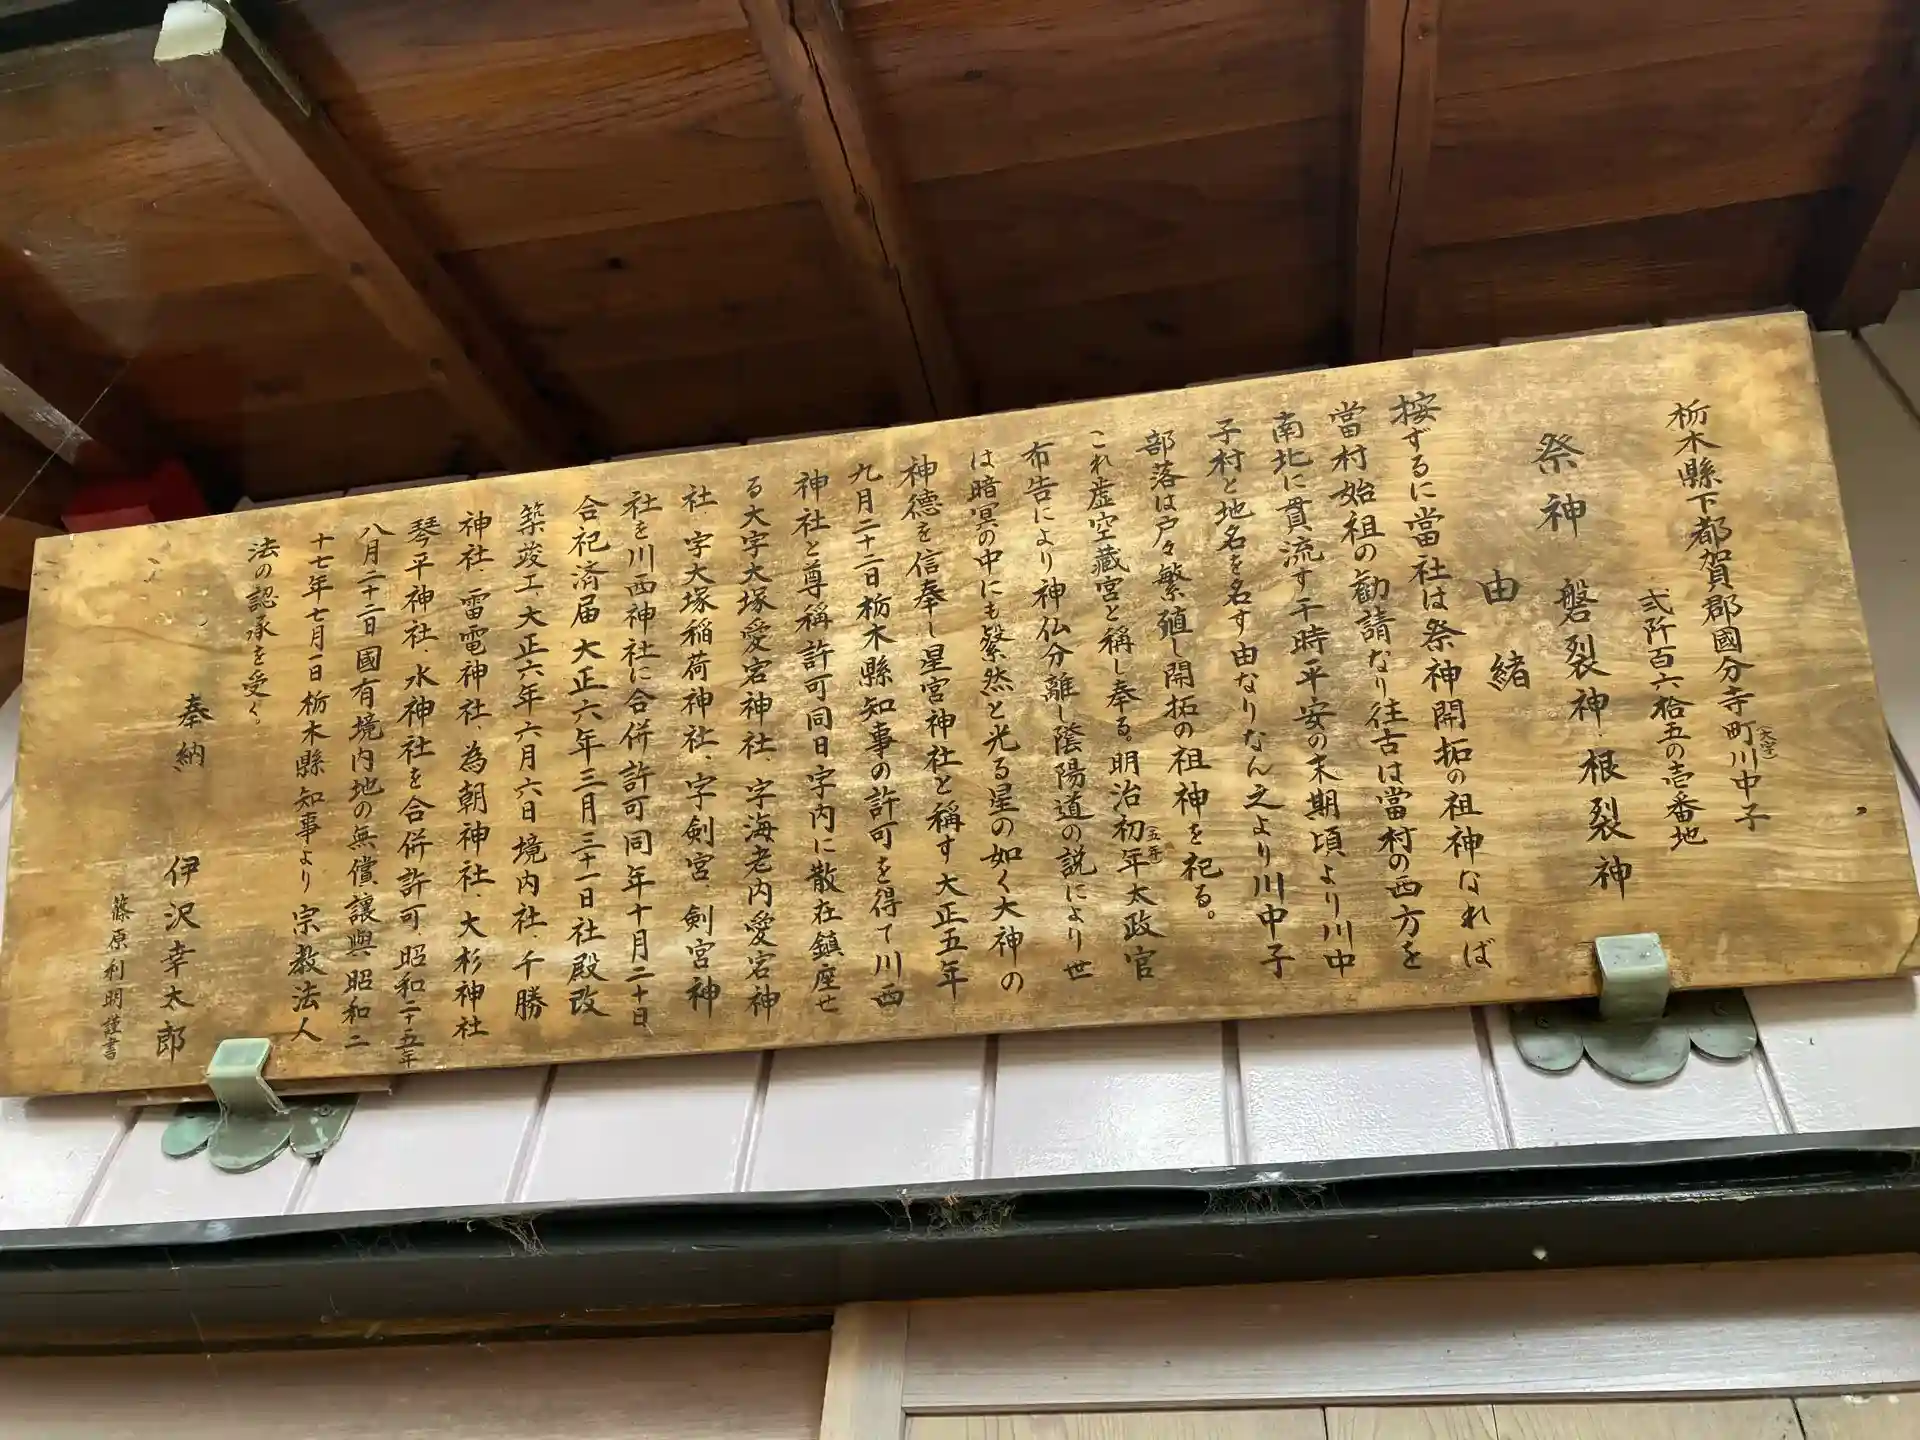 栃木縣下都賀郡國分寺町(大字)川中子
弐阡百六拾五の壱番地
祭神 磐裂神・根裂神
由緒
按ずるに當社は祭神開拓の祖神なれば
當村始祖の勧請なり往古は當村の西方を
南北に貫流す干時平安の末期頃より川中
子村と地名を名す由なりなん之より川中子
部落は戸々繁殖し開拓の祖神を祀る。
これ虚空藏宮と稱し奉る。明治初(五年)年太政官
布告により神仏分離し陰陽道の説により世
は暗冥の中にも粲然と光る星の如く大神の
神德を信奉し星宮神社と稱す大正五年
九月二十二日栃木縣知事の許可を得て川西
神社と尊稱許可同日字内に散在鎮座せ
る大字大塚愛宕神社、字海老内愛宕神
社 字大塚稲荷神社、字剣宮、剣宮神
社を川西神社に合併許可同年十月二十日
合祀済届 大正六年三月三十一日社殿改
築竣工大正六年六月六日境内社、千勝
神社 雷電神社、為朝神社、大杉神社
琴平神社、水神社を合併許可、昭和二十五年
八月二十二日國有境内地の無償讓與 昭和二
十七年七月一日栃木縣知事より宗教法人
法の認承を受く。
奉納 伊沢幸太郎
藤原利明謹書